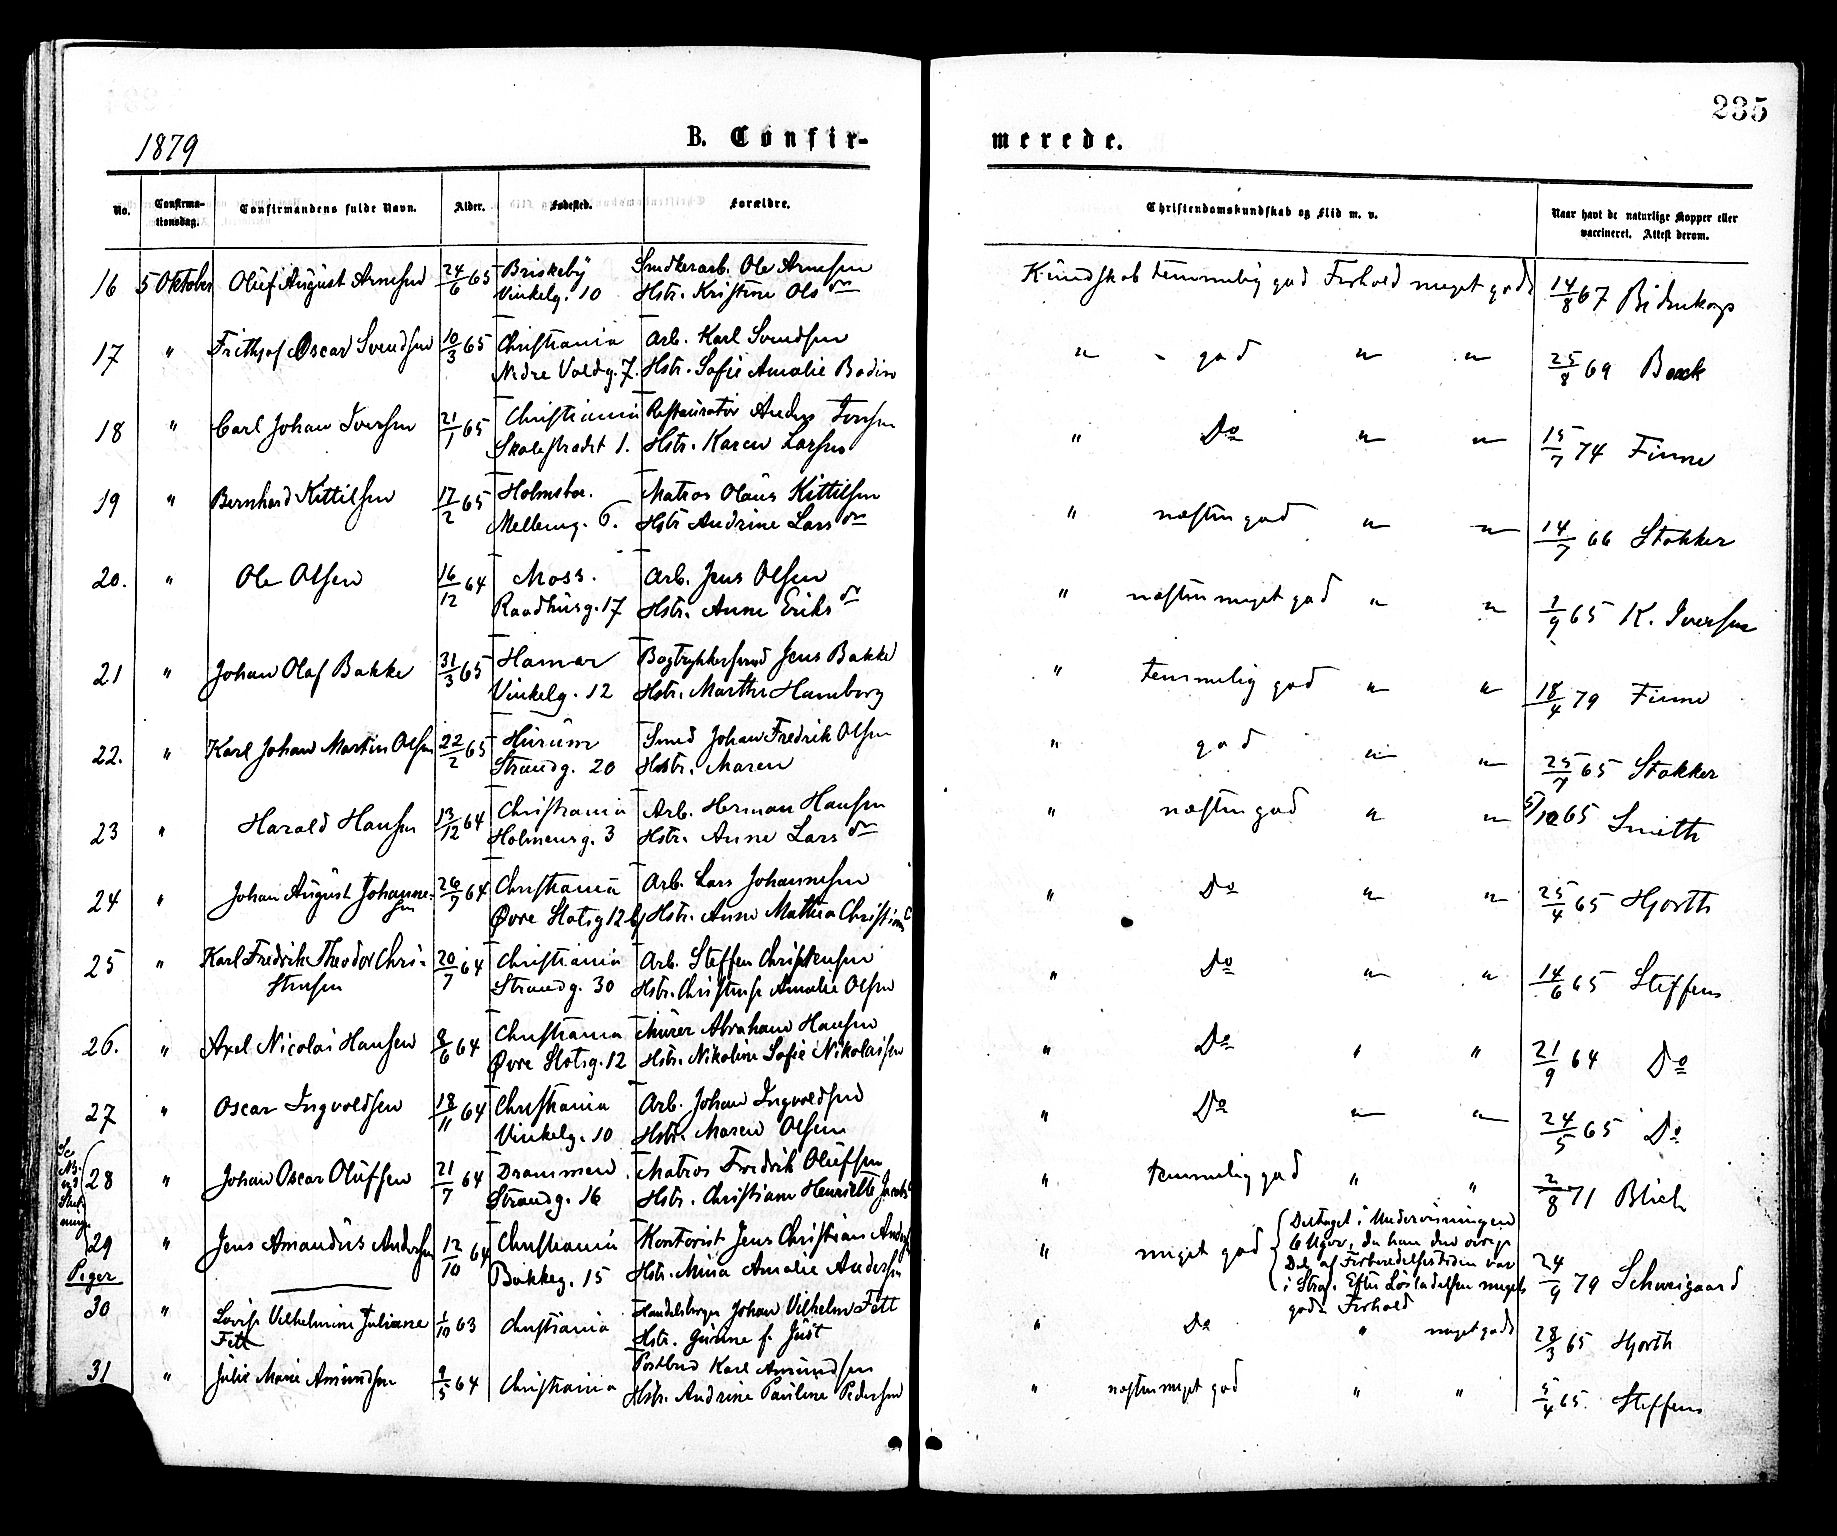 235
1879
B. Confir-
merede.
No. Confirma-tionsdag. Confirmandens fulde Navn. Alder. Fødested. Forældre. Christendomskundskab og Flid m. v. Naar havt de naturlige Kopper eller vaccineret. Attest derom.
16 5 Oktober Oluf August Arnesen 24/6 65 Briskeby Ole Arnesen Kundskab temmelig god Forhold meget godt 14/8 67
Vinkelg. 10 Hstr. Kristine Ols dr
17 " Frithjof Oscar Svendsen 10/3 65 Christiania Arb. Karl Svendsen " - god " " 25/8 69 Boeck
Nedre Voldg. 7. Hstr. Sofie Amalie Bodin
18 " Carl Johan Iversen 21/1 65 Christiania Restauratør Anders Iversen " Do " " 15/7 74 Finne
Skolestrædet 1. Hstr. Karen Larsen
19 " Bernhard Kittilsen 17/2 65 Holmsbo. Matros Olaus Kittilsen " næsten god " " 14/7 66 Stokker
Mellemg. 6. Hstr Andrine Lars dr
20. " Ole Olsen 16/12 64 Moss. Arb. Jens Olsen " næsten meget god " " 65 K. Iversen
Raadhusg. 17 Hstr. Anne Eriks dr
21 " Johan Olaf Bakke 31/3 65 Hamar Bogtrykkersvend Jens Bakke " temmelig god " " 18/4 79 Finne
Vinkelg. 12 Hstr. Marthe Hamborg
22. " Karl Johan Martin Olsen 22/2 65 Hurum Smed Johan Fredrik Olsen " god " " 25/7 65 Stokker
Strandg. 20 Hstr. Maren
23 " Harald Hansen 13/12 64 Christiania Arb. Herman Hansen " næsten god " " 5/10 65 Smith
Holmensg. 3 Hstr. Anne Lars dr
24 " Johan August Johanne- 26/7 64 Christiania Arb. Lars Johannesen " Do " " 25/4 65 Hjorth
sen Øvre Slotsg 12 b Hstr. Anne Mathea
25 " Karl Fredrik Theodor Chri- 20/7 64 Christiania Arb. Steffen Christensen " Do " " 14/6 65 Steffens
stensen Strandg. 30 Hstr. Amalie Olsen
26. " Axel Nicolai Hansen 8/6 64 Christiania Murer Abraham Hansen " Do " " 21/9 64 Do
Øvre Slotsg. 12 Hstr. Nikoline Sofie Nikolaisen
27 " Oscar Ingvoldsen 18/11 64 Christiania Arb. Johan Ingvoldsen " Do " " 24/5 65 Do
Vinkelg. 10 Hstr. Maren Olsen
28 " Johan Oscar Oluffsen 21/7 64 Drammen Matros Fredrik Oluffsen " temmelig god " " 2/8 71 Blich
Strandg. 16 Hstr. Christiane Henriette
29 " Jens Amandus Andersen 12/10 64 Christiania Kontorist Jens Christian " meget god Deltaget i Undervisningen 24/9 79 Schweigaard
6 Uger, da han den øvrige
Del af Forberedelsestiden var
Bakkeg. 15 Hstr. Mina Amalie Andersen i Straf. Efter Løsladelsen meget
godt Forhold
Piger
30 " Lovise Vilhelmine Juliane 1/10 63 Christiania Handelsborger Johan Vilhelm Fett " Do " meget godt 28/3 65 Hjorth
Fett Hstr. f. Just
31 " Julie Marie Amundsen 9/5 64 Christiania Postbud Karl Amundsen " næsten meget god " " 5/4 65. Steffens
Hstr. Andrine Pauline Pedersen